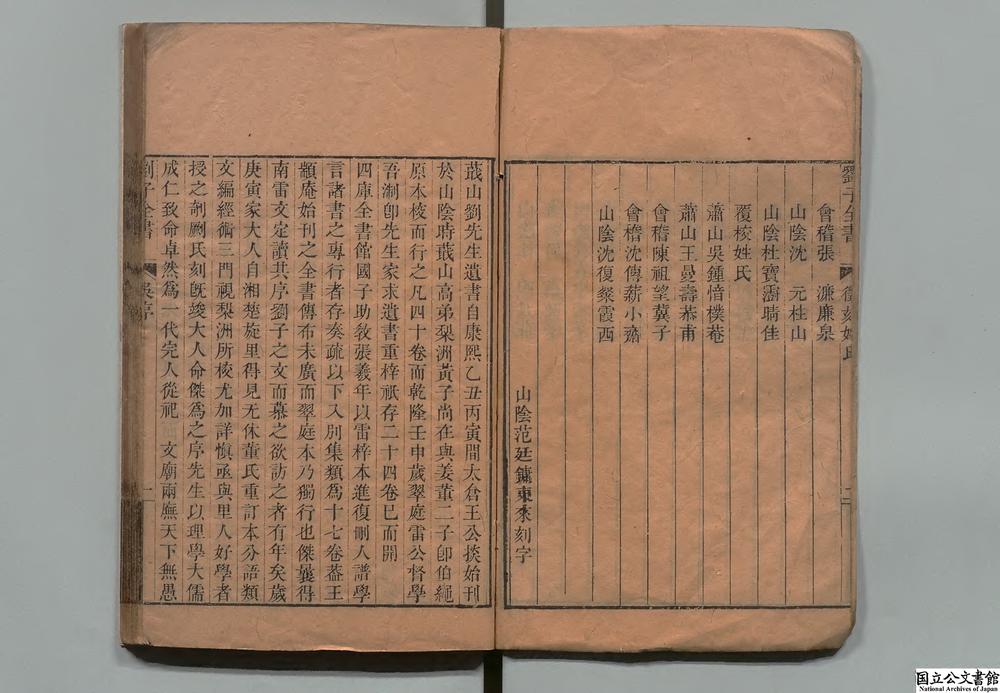 劉子全書 徵刻姓氏 二
會稽張 濂廉泉
山陰沈 元桂山
山陰杜寶澍晴佳
覆校姓氏
蕭山吳鍾愔樸菴
蕭山王曼壽恭甫
會稽陳祖望冀子
會稽沈傳薪小齋
山陰沈復粲霞西
山陰范廷鏞東來刻字
蕺山劉先生遺書自康熙乙丑丙寅間太倉王公掞始刊
於山陰時蕺山高弟棃洲黃子尚在與姜董二子卽伯繩
原本校而行之凡四十卷而乾隆壬申歲翠庭雷公督學
吾浙卽先生家求遺書重梓祇存二十四卷已而開
四庫全書館國子助敎張羲年以雷梓本進復刪人譜學
言諸書之專行者存奏疏以下入別集類爲十七卷葢王
顓庵始刊之全書傳布未廣而翠庭本乃獨行也傑曩得
南雷文定讀其序劉子之文而慕之欲訪之者有年矣歲
庚寅家大人自湘楚旋里得見无休董氏重訂本分語類
文編經術三門視棃洲所校尤加詳愼亟與里人好學者
授之剞劂氏刻旣竣大人命傑爲之序先生以理學大儒
成仁致命卓然爲一代完人從祀 文廟兩廡天下無愚
劉子全書 吳序 一
国立公文書館
National Archives of Japan